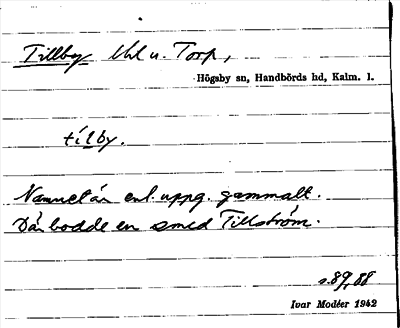 Tillby lht u. Torp,
Högsby sn, Handbörds hd, Kalm. l.
tilby.
Namnet är enl. uppg. gammalt.
Där bodde en smed Tillström.
s. 89, 88
Ivar Modéer 1942